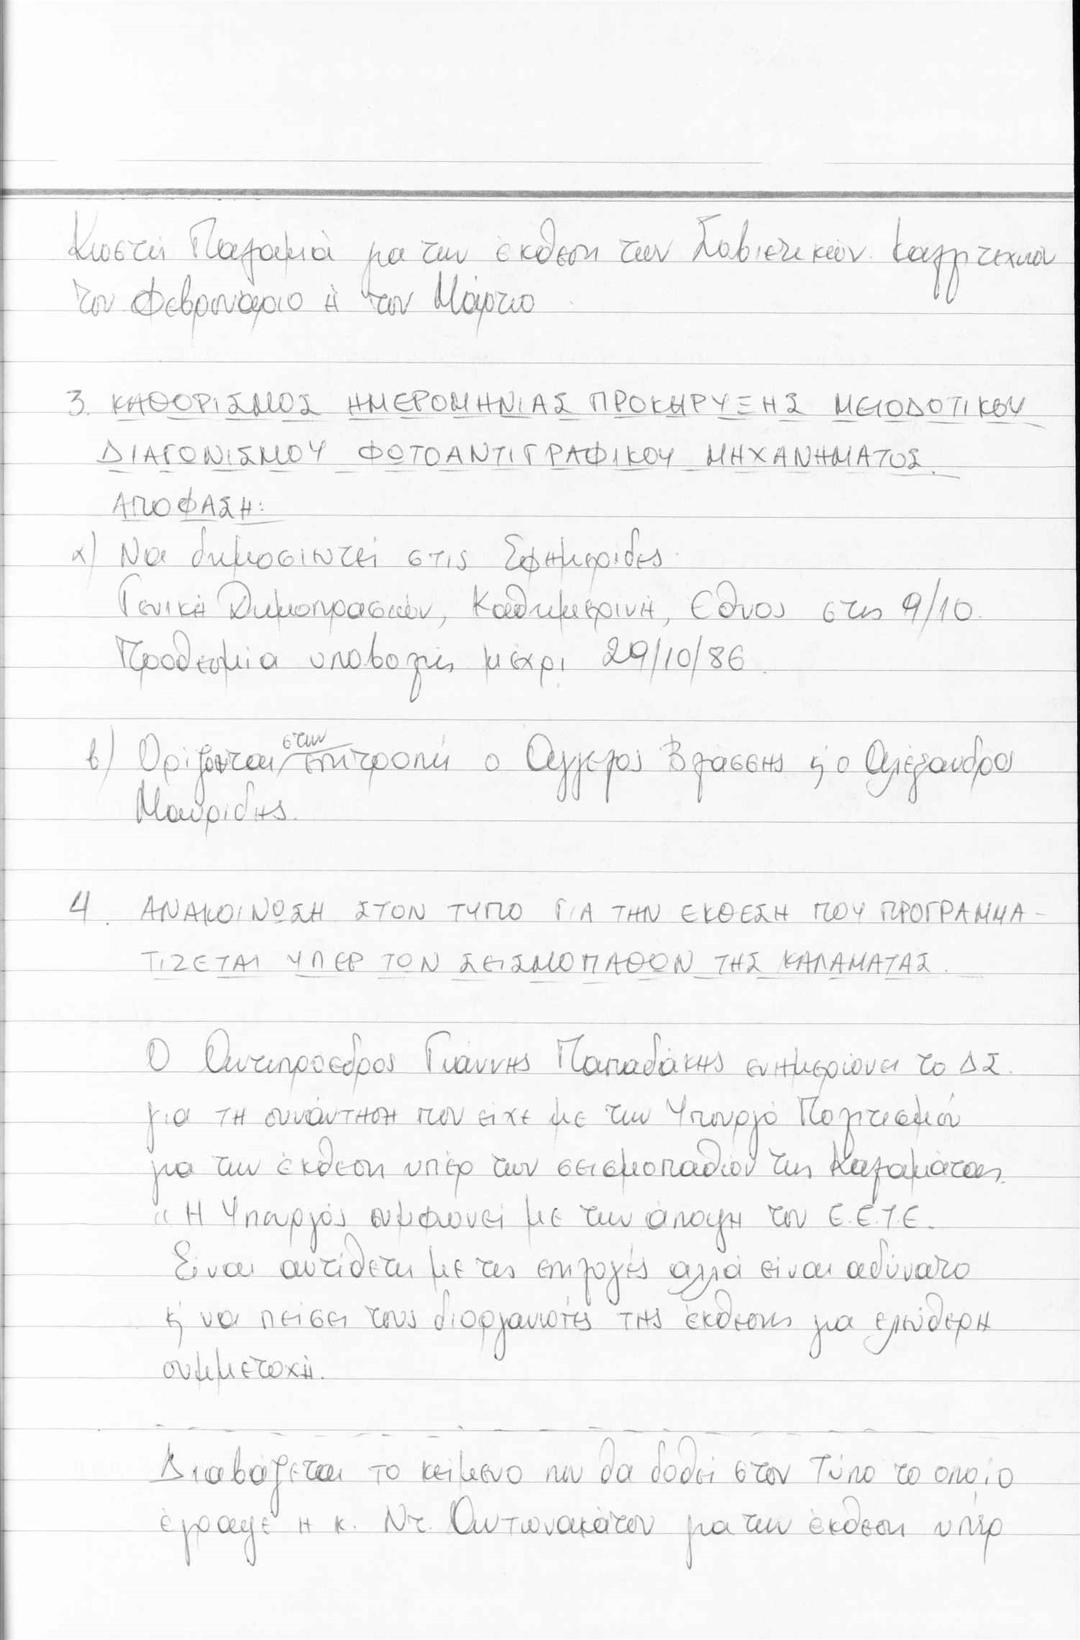 Κωστή Παλαμά για την έκθεση των Σοβιετικών καλλιτεχνών
τον Φεβρουάριο ή τον Μάρτιο.
3. ΚΑΘΟΡΙΣΜΟΣ ΗΜΕΡΟΜΗΝΙΑΣ ΠΡΟΚΗΡΥΞΗΣ ΜΕΙΟΔΟΤΙΚΟΥ
ΔΙΑΓΩΝΙΣΜΟΥ ΦΩΤΟΑΝΤΙΓΡΑΦΙΚΟΥ ΜΗΧΑΝΗΜΑΤΟΣ.
ΑΠΟΦΑΣΗ:
α) Να δημοσιευτεί στις Εφημερίδες
Γενική Δημοπρασιών, Καθημερινή, Εθνος στις 9/10.
Προθεσμία υποβολής μέχρι 29/10/86.
β) Ορίζονται στην επιτροπή ο Αγγελος Βλάσσης ϗ ο Αλέξανδρος
Μαυρίδης.
4. ΑΝΑΚΟΙΝΩΣΗ ΣΤΟΝ ΤΥΠΟ ΓΙΑ ΤΗΝ ΕΚΘΕΣΗ ΠΟΥ ΠΡΟΓΡΑΜΜΑ-
ΤΙΖΕΤΑΙ ΥΠΕΡ ΤΩΝ ΣΕΙΣΜΟΠΑΘΩΝ ΤΗΣ ΚΑΛΑΜΑΤΑΣ.
Ο Αντιπρόεδρος Γιάννης Παπαδάκης ενημερώνει το ΔΣ.
για τη συνάντηση που είχε με την Υπουργό Πολιτισμού
για την έκθεση υπέρ των σεισμοπαθών της Καλαμάτας.
"Η Υπουργός συμφωνεί με την άποψη του Ε.Ε.Τ.Ε.
Είναι αντίθετη με τις επιλογές αλλά είναι αδύνατο
ϗ να πείσει τους διοργανωτές της έκθεσης για ελεύθερη
συμμετοχή.
Διαβάζεται το κείμενο που θα δοθεί στον Τύπο το οποίο
έγραψε η κ. Ντ. Αντωνακάτου για την έκθεση υπέρ